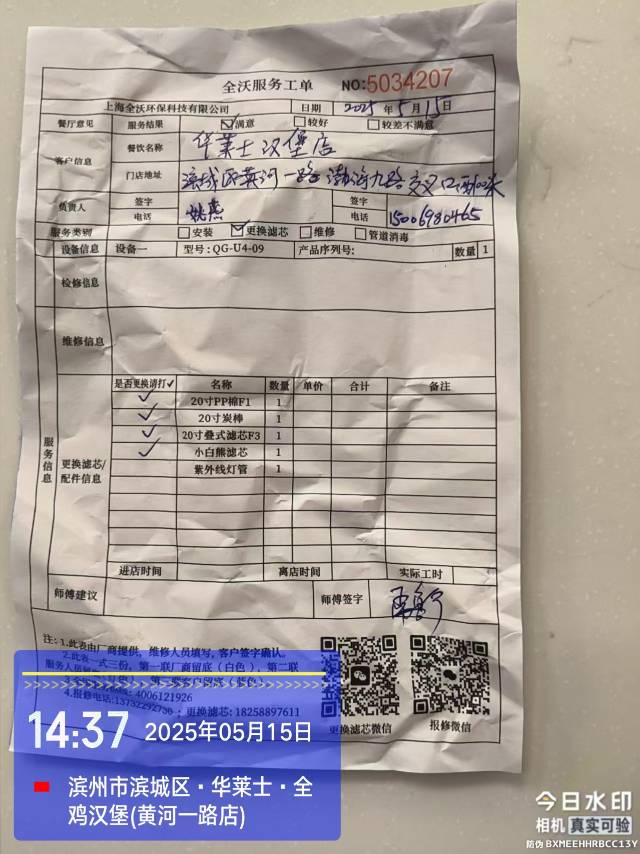 全沃服务工单 NO:5034207
上海全沃环保科技有限公司 日期 2025年5月15日
餐厅意见 服务结果 ☑满意 □较好 □较差不满意
客户信息 餐饮名称 华莱士汉堡店
门店地址 滨城区黄河一路渤海九路交叉口
负责人 签字 姚燕 签字
电话 电话 15006980465
服务类别 □安装 ☑更换滤芯 □维修 □管道消毒
设备信息 设备一 型号:QG-U4-09 产品序列号: 数量 1
检修信息
维修信息
服务信息
更换滤芯/配件信息
是否更换请打✓ 名称 数量 单价 合计 备注
✓ 20寸PP棉F1 1
✓ 20寸炭棒 1
✓ 20寸叠式滤芯F3 1
✓ 小白熊滤芯 1
紫外线灯管 1
进店时间 离店时间 实际工时
师傅建议 师傅签字
注:1.此表由厂商提供,维修人员填写,客户签字确认。
2.此表一式三份,第一联厂商留底(白色),第二联
服务人员
4006121926
4.报修电话:13732292730;更换滤芯:18258897611
更换滤芯微信 报修微信
14:37 2025年05月15日
滨州市滨城区·华莱士·全
鸡汉堡(黄河一路店)
今日水印
相机 真实可验
防伪 BXMEEHHRBCC13Y